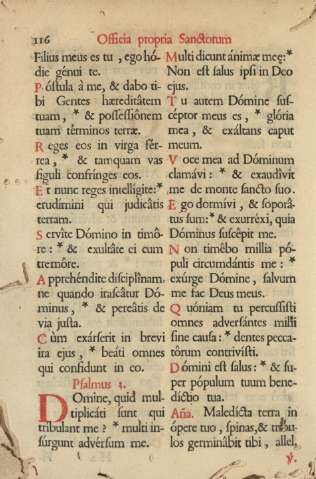 116 Officia propria Sanctorum
Filius meus es tu , ego hó-
die génui te.
Póstula à me, & dabo ti-
bi Gentes hæreditâtem
tuam, * & possessiônem
tuam têrminos terræ.
Reges eos in virga fér-
rea, * & tamquam vas
figuli confrínges eos.
Et nunc reges intelligite:*
erudimini qui judicâtis
terram.
Servite Dómino in timô-
re : * & exultâte ei cum
tremôre.
Apprehéndite disciplînam,
ne quando irascâtur Dó-
minus, * & pereâtis de
via justa.
Cùm exárserit in brevi
ira ejus, * beáti omnes
qui confidunt in eo.
Psalmus 3.
Domine, quid mul-
tiplicáti sunt qui
tribulant me ? * multi in-
súrgunt advérsum me.
Multi dicunt ánimæ meę:*
Non est salus ipsi in Deo
ejus.
Tu autem Dómine sus-
céptor meus es, * glória
mea, & exáltans caput
meum.
Voce mea ad Dóminum
clamávi : * & exaudívit
me de monte sancto suo.
Ego dormívi, & soporâ-
tus sum:* & exurréxi, quia
Dóminus suscépit me.
Non timêbo millia pó-
puli circumdántis me : *
exúrge Dómine, salvum
me fac Deus meus.
Quóniam tu percussísti
omnes adversántes mihi
sine causa: * dentes pecca-
tôrum contrivísti.
Dómini est salus: * & su-
per pópulum tuum bene-
díctio tua.
Aña. Maledícta terra in
ópere tuo, spinas, & tribu-
los germinâbit tibi, allel.
℣.